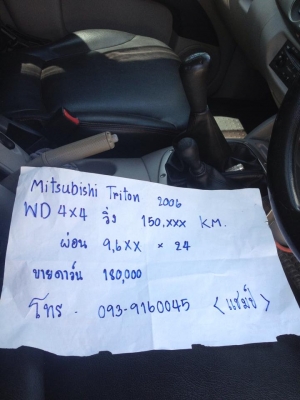 Mitsubishi Triton 2006
WD 4x4 วิ่ง 150.xxx KM.
ผ่อน 9,6xx x 24
ขายดาว์น 180,000
โทร - 093-9160045 <แชมป์>